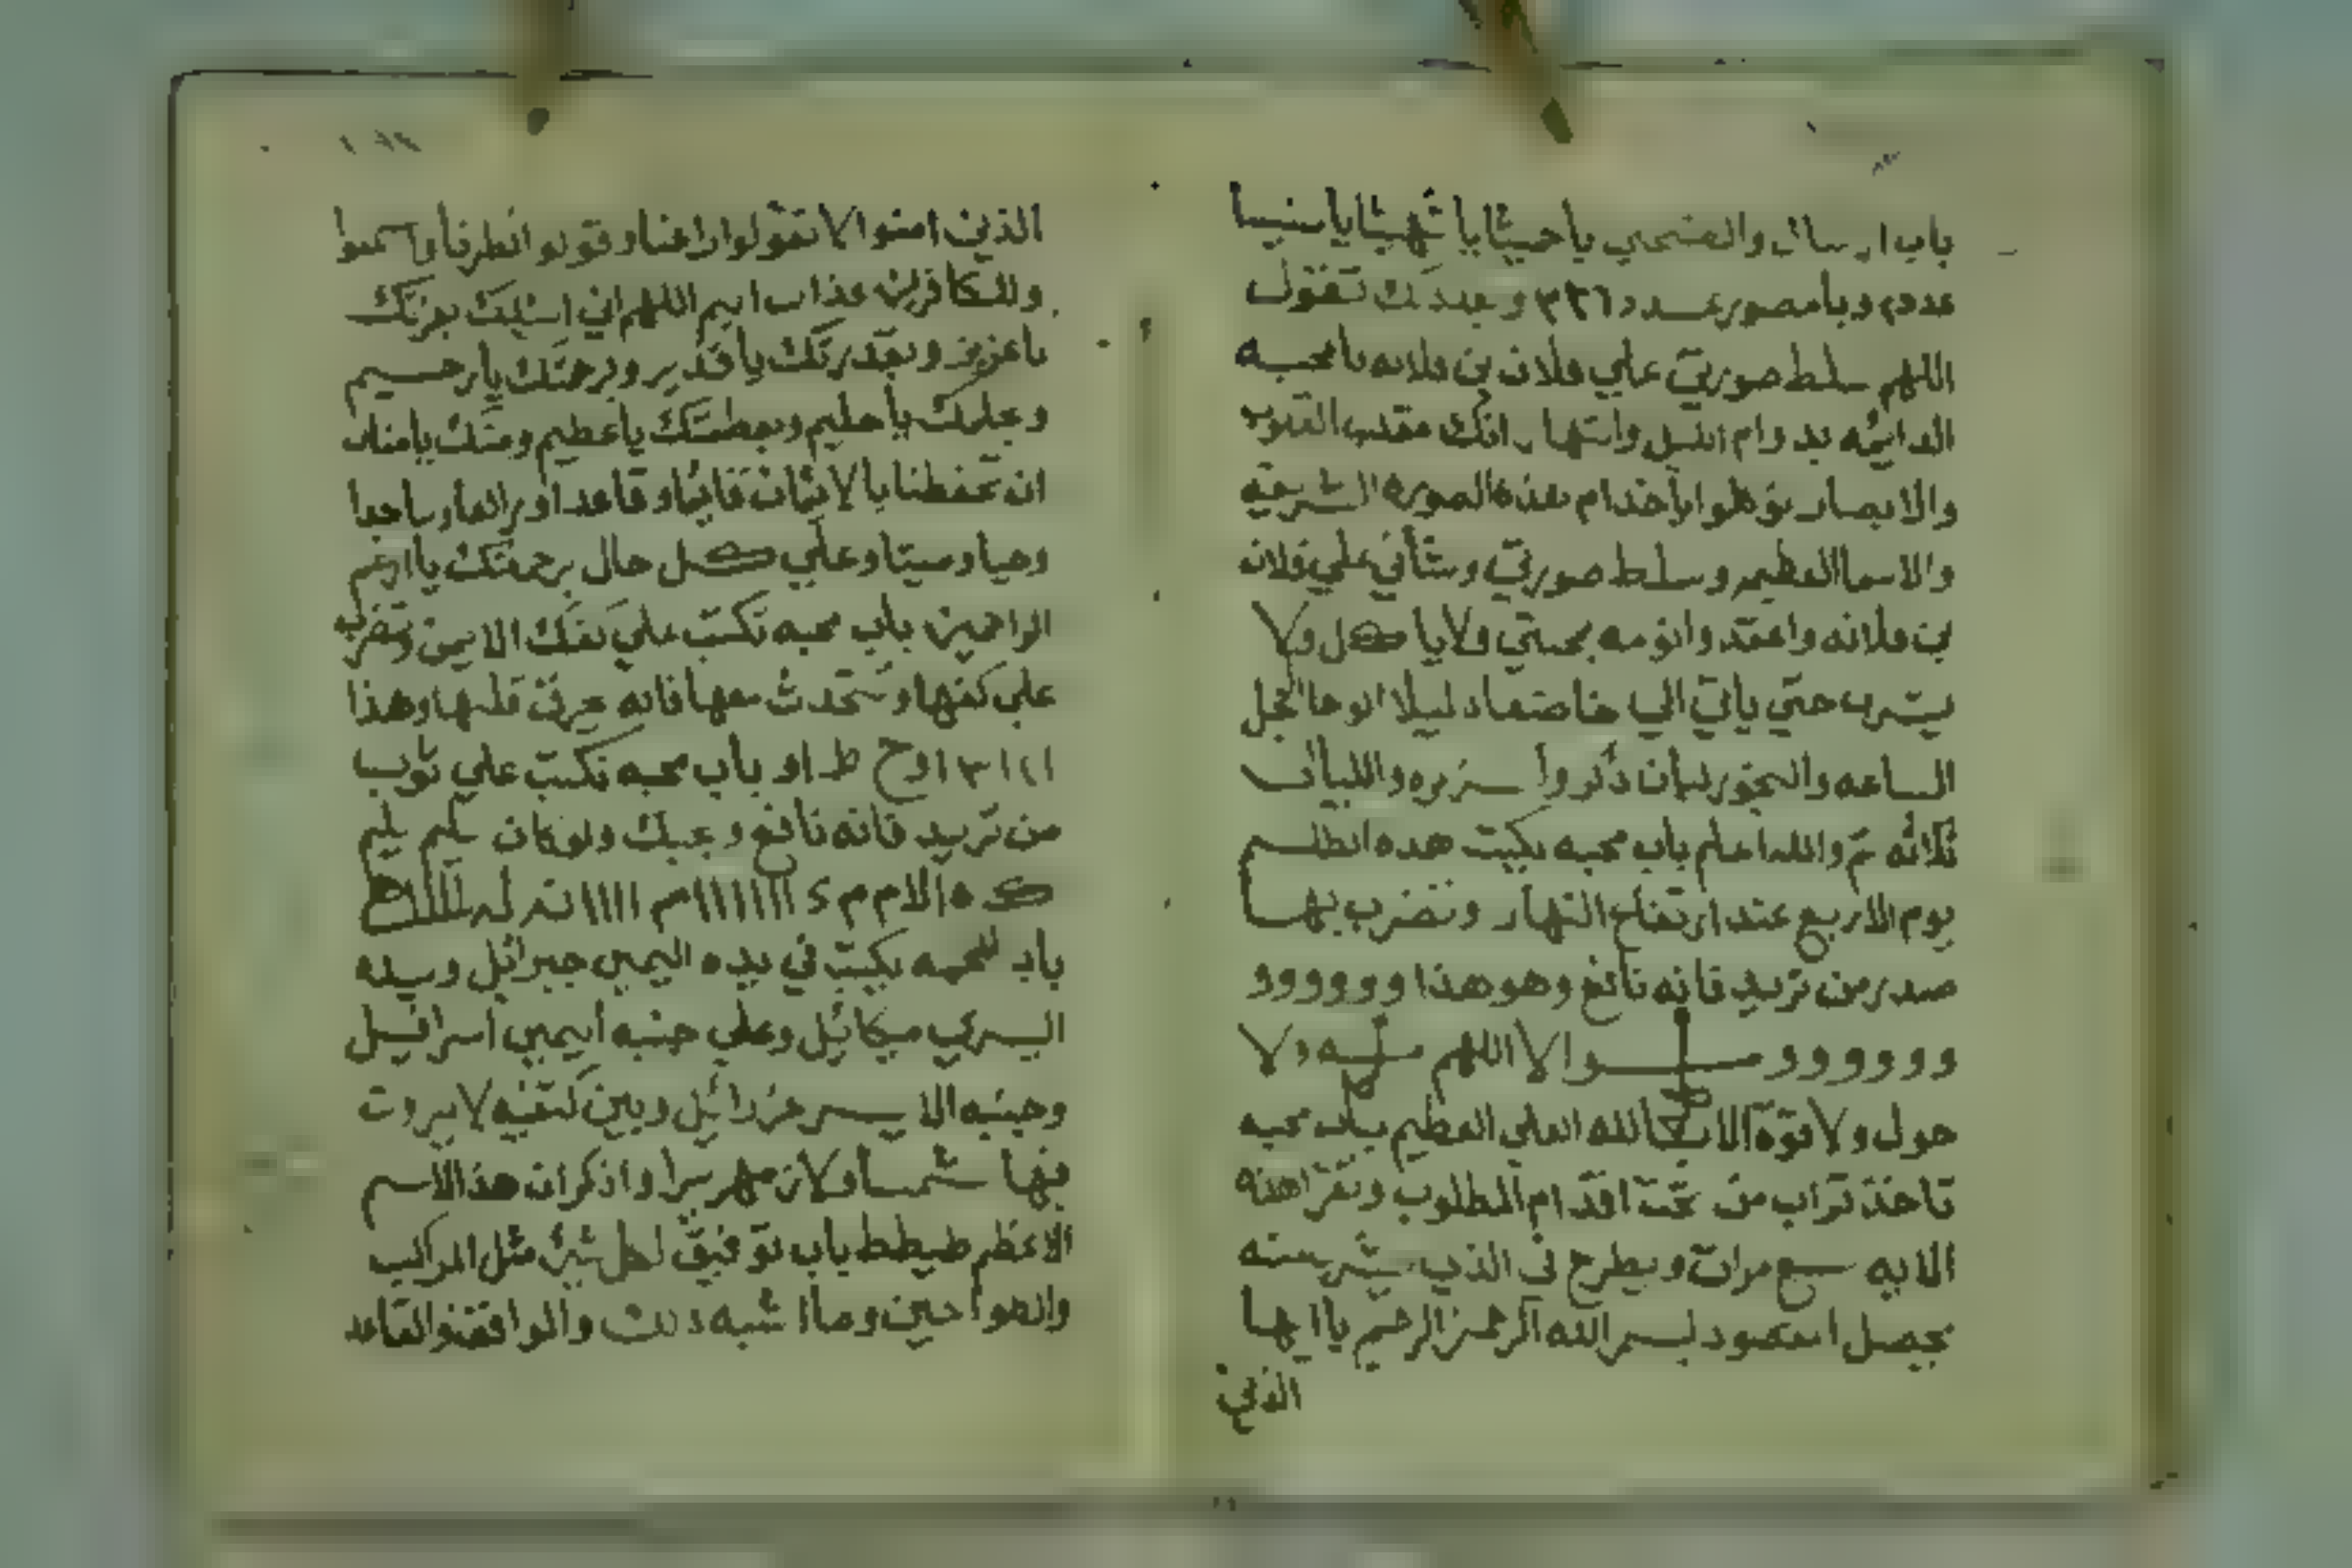 باب ارسال والعشحي يا حسيثا يا شهيثا يا سنيسا
عدد م ويا مصور عدد ٣٢٦ وبعد ذلك تقول
اللهم سلط صورتي علي فلان بن فلانه بامحبه
الدايمه بدوام الليل والنهار انك مقلب القلوب
والابصار توكلوا ياخدام هذه الصوره الشريفه
والاسما العظيم وسلط صورتي ومثالي علي فلان
بن فلانه واعقد وانومه بمحبتي ولا ياكل ولا
يشرب حتي ياتي الي خاضعا دليلا الوحا العجل
الساعه والبخور لبان دكر وا سزبره واللبان
ثلاثه تم والله اعلم باب محبه يكتب هده الطلسم
يوم الاربع عند ارتفاع النهار وتضرب بها
صدر من تريد فانه نافع وهو هذا وووووو
وووووو والا اللهم ولا
حول ولا قوة الا بالله العلي العظيم باب محبه
تاخذ تراب من تحت اقدام المطلوب وتقرا هذه
الايه سبع مرات ويطرح في الذي يشرب منه
يحصل المقصود بسم الله الرحمن الرحيم ياايها
الذين
الذين امنوا لا تقولوا راعنا وقولو انظرنا واسمعوا
وللكافرين عذاب اليم اللهم اني اسئلك بعزتك
ياعزيز وبقدرتك ياقدير وبرحمتك يارحيم
وبحلمك ياحليم وبعظمتك ياعظيم ومنك يامنان
ان تحفظنا بالايمان قائما وقاعدا وراكعا وساجدا
وحيا وميتا وعلي كل حال برحمتك ياارحم
الراحمين باب محبه تكتب علي كفك الايمن وتضرب
علي كفها وتتحدث معها فانه حرق قلبها وهذا
١٢١٣١ وح ط او باب محبه تكتب علي ثوب
من تريد فانه نافع وعجبك ولو كان
باب للمحبه يكتب في يده اليمين جبرائل وبيده
اليسري ميكائيل وعلي جنبه اليمين اسرافيل
وجنبه الايسر عزرائيل وبين كتفيه لا يروت
فيها شمسا ولا زمهريرا واذكر ان هذا الاسم
الاعظم طيطط باب توفيق لكل شئ مثل المراكب
والطواحين وما اشبه دلك والوافقة والقاعد